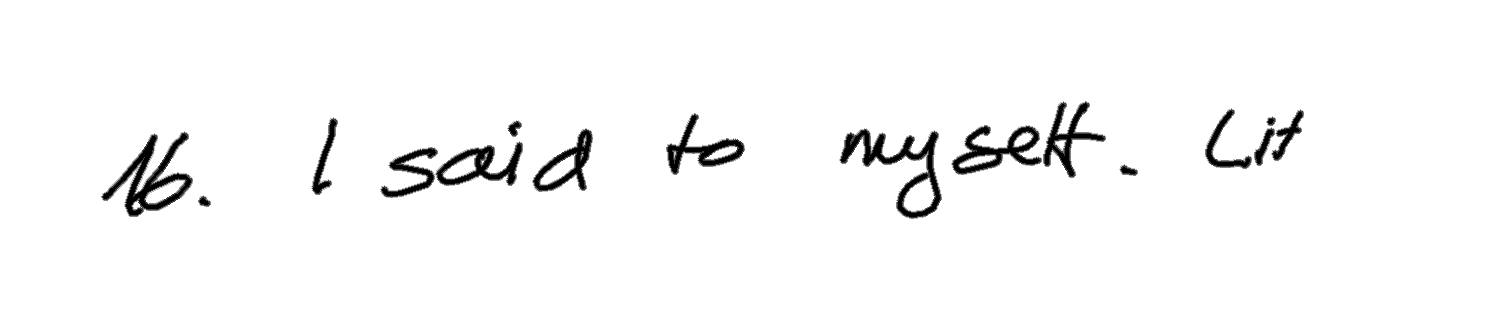 16. I said to myself. Lit